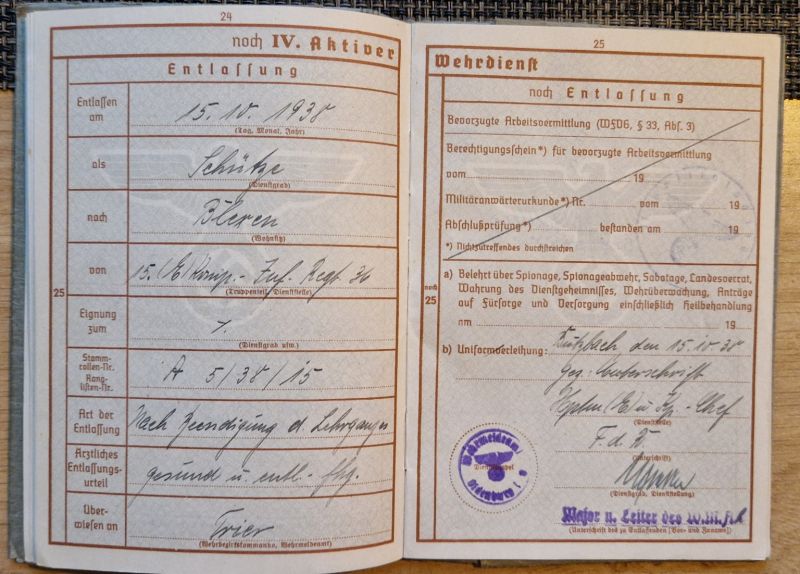 24
noch IV. Aktiver
Entlassung
Entlassen am
15. 10. 1938
(Tag, Monat, Jahr)
als
Schütze
(Dienstgrad)
nach
(Wohnsitz)
von
15. (E) Komp. Inf. Regt. 36
(Truppenteil, Dienststelle)
25
Eignung zum
(Dienstgrad usw.)
Stammrollen-Nr.
Ranglisten-Nr.
A 5/38/15
Art der Entlassung
Nach Beendigung d. Lehrganges
Ärztliches Entlassungsurteil
gesund u. entl.
Überwiesen an
Trier
(Wehrbezirkskommando, Wehrmeldeamt)
25
Wehrdienst
noch Entlassung
Bevorzugte Arbeitsvermittlung (WFVG, § 33, Abs. 3)
Berechtigungsschein*) für bevorzugte Arbeitsvermittlung
vom 19
Militäranwärterurkunde*) Nr. vom 19
Abschlußprüfung*) bestanden am 19
*) Nichtzutreffendes durchstreichen
noch 25
a) Belehrt über Spionage, Spionageabwehr, Sabotage, Landesverrat,
Wahrung des Dienstgeheimnisses, Wehrüberwachung, Anträge
auf Fürsorge und Versorgung einschließlich Heilbehandlung
am 19
b) Uniformverleihung:
Butzbach den 15. 10. 38
gez. Unterschrift
Hptm (E) u. Kp.-Chef
(Dienststelle)
F. d. R.
Wehrmeldeamt
Dienststempel
Oldenburg i. O
(Unterschrift)
(Dienstgrad, Dienststellung)
Major u. Leiter des W.M.A.
(Unterschrift des zu Entlassenden [Vor- und Zuname])